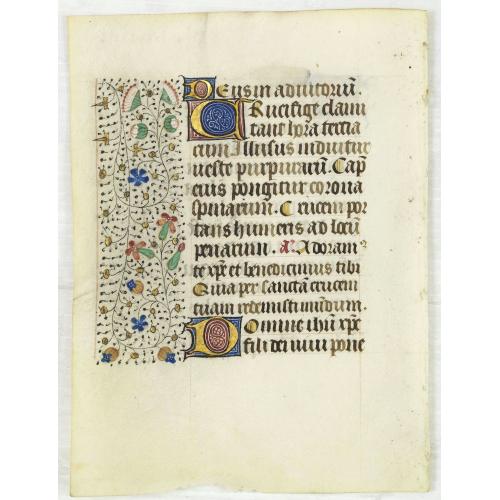 Deus in adiutoriū.
Crucifige clami
tant hora tercia
rum Illusus induitur
ueste purpurarum. Cap̄
eius pongitur corona
spinarum. Crucem por
tans humeris ad locū
penarum. Adoram
te xp̄e et benedicimus tibi
Quia per sanctā crucem
tuam redemisti mūdum.
Domine ihū xp̄e
fili dei uiui pone